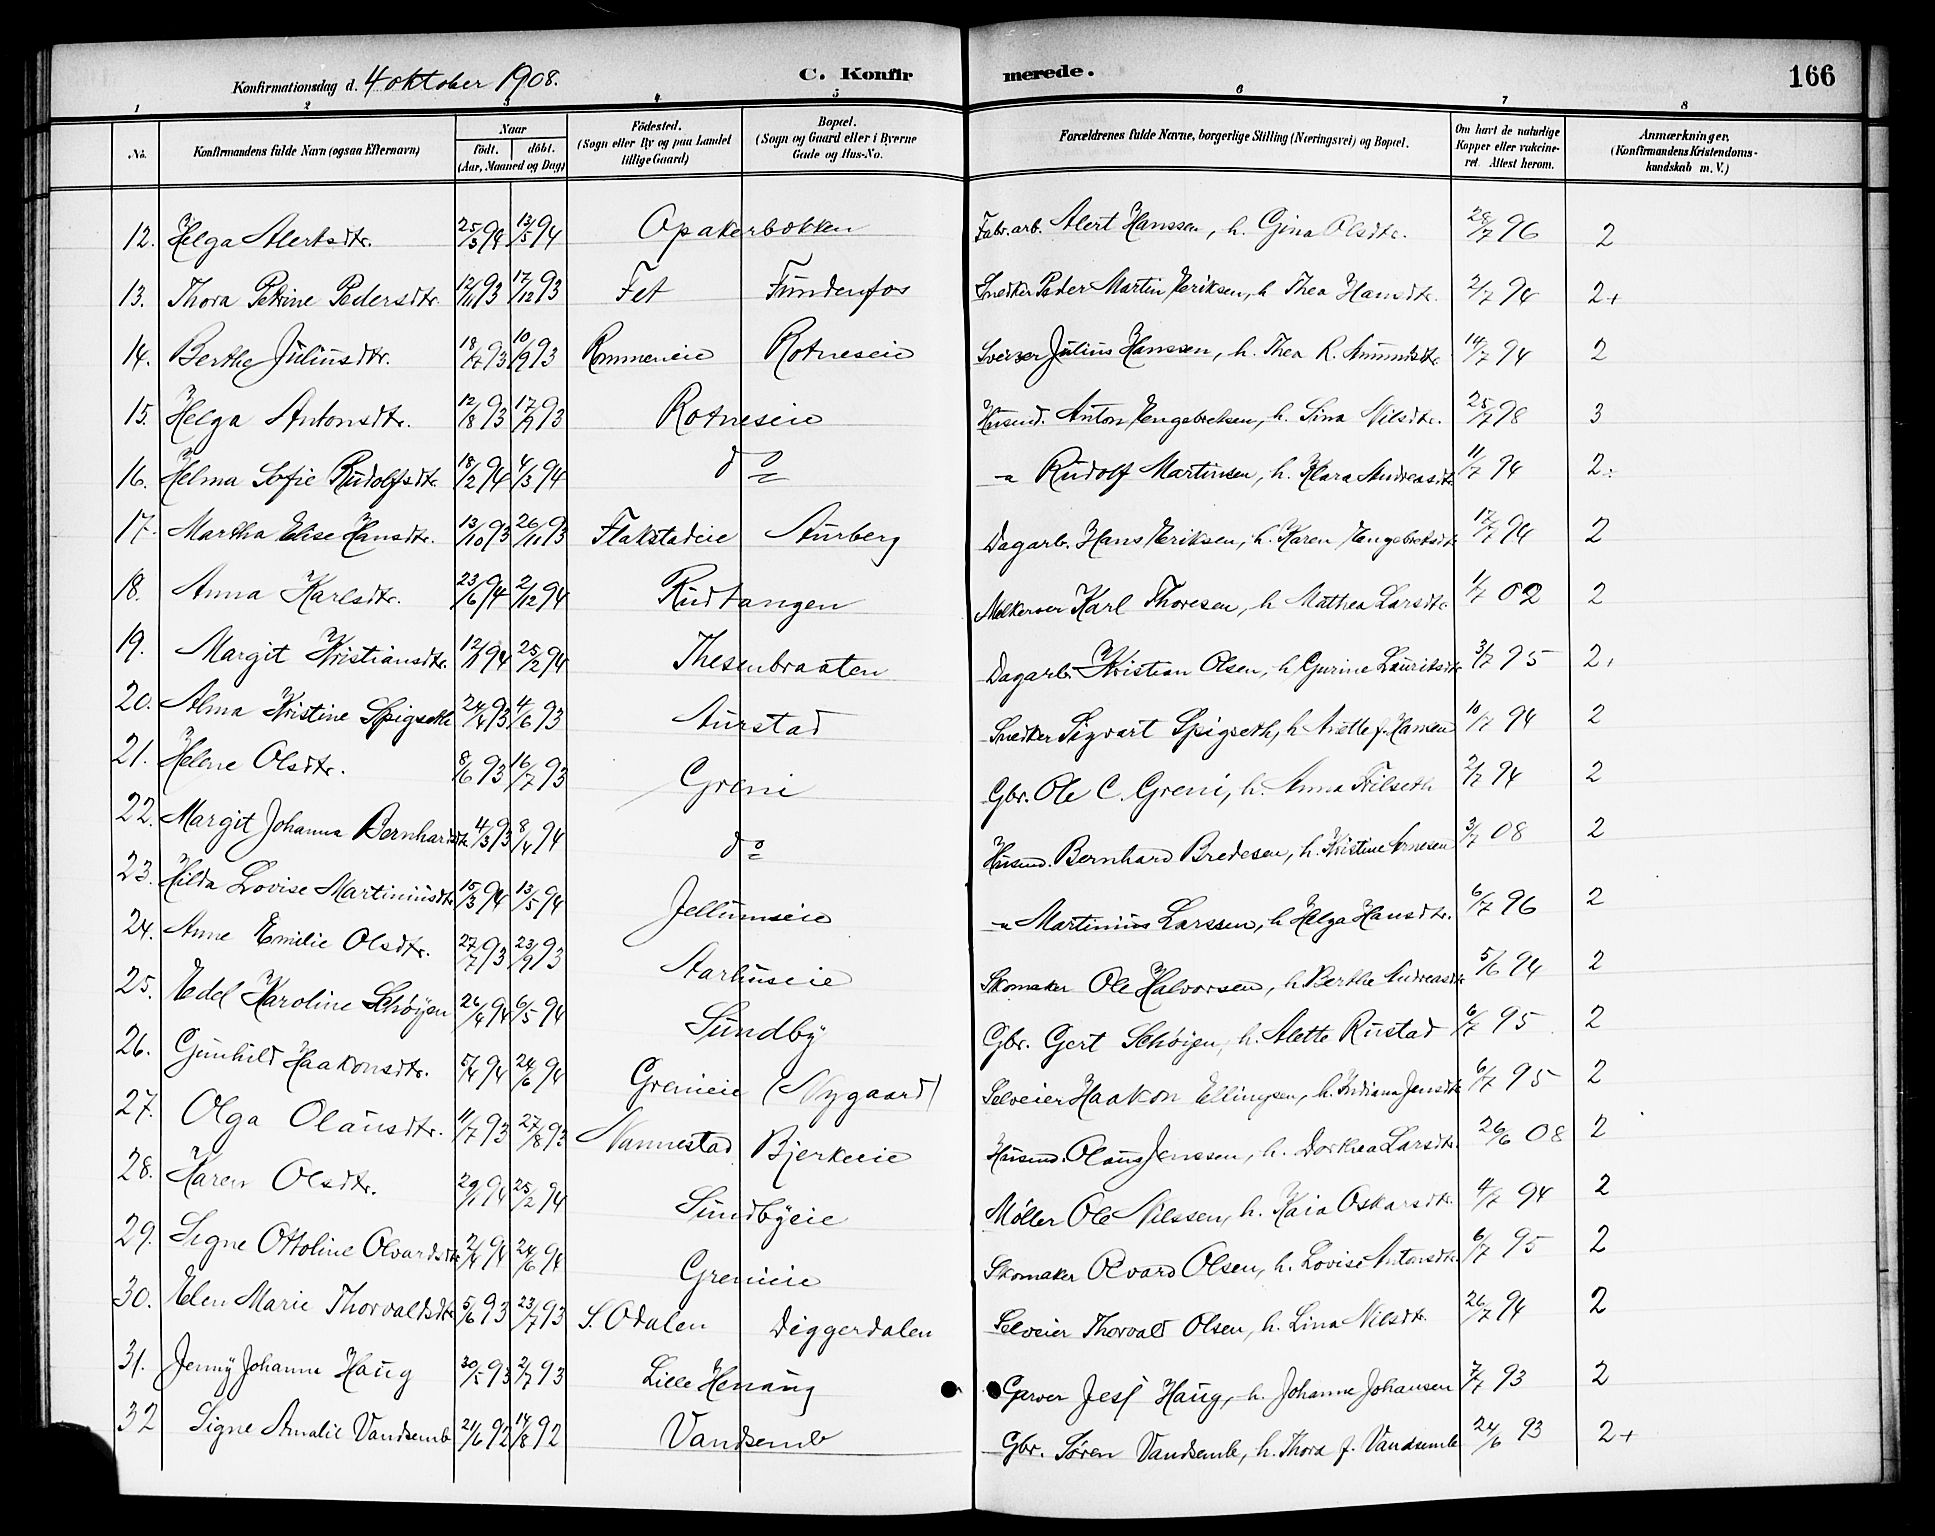 Konfirmationsdag d. 4 oktober 1908.
C. Konfirmerede.
166
1 2 3 4 5 6 7 8
No.
Konfirmandens fulde Navn (ogsaa Efternavn)
Naar
født. døbt.
(Aar, Maaned og Dag)
Födested.
(Sogn eller By og paa Landet
tillige Gaard)
Bopæl.
(Sogn og Gaard eller i Byerne
Gade og Hus-No.
Forældrenes fulde Navne, borgerlige Stilling (Næringsvei) og Bopæl.
Om havt de naturlige
Kopper eller vakcine-
ret. Attest herom.
Anmærkninger,
(Konfirmandens Kristendoms-
kundskab m. V.)
12. Helga Alertsdtr. 25/3 94 13/5 94 Opakerbakken Fabr.arb. Alert Hanssen, h. Gina Olsdtr. 28/7 96 2
13. Thora Petrine Pedersdtr. 12/11 93 17/12 93 Fet Fundenfos Snedker Peder Martin Eriksen, h. Thea Hansdtr. 2/7 94 2+
14. Berthe Juliusdtr. 18/7 93 10/9 93 Rommeneie Rotneseie Sveiser Julius Hanssen, h. Thea R. Amundsdtr. 14/7 94 2
15. Helga Antonsdtr. 12/8 93 17/9 93 Rotneseie Husmd. Anton Engebretsen, h. Lina Nilsdtr. 25/7 98 3
16. Helma Sofie Rudolfsdtr. 18/2 94 4/3 94 do - " Rudolf Martinsen, h. Klara Andreasdtr. 11/7 94 2
17. Martha Elise Hansdtr. 13/10 93 26/11 93 Flakstadeie Aurberg Dagarb. Hans Eriksen, h. Karen Engebretsdtr. 17/7 94 2
18. Anna Karlsdtr. 23/6 94 2/12 94 Rudtangen Melkerser Karl Thoresen, h. Mathea Larsdtr. 1/7 02 2
19. Margit Kristiansdtr. 12/1 94 25/2 94 Thesenbraaten Dagarb. Kristian Olsen, h. Gurine Lauritsdtr. 3/7 95 2+
20. Alma Kristine Spigseth 24/4 93 4/6 93 Aurstad Snedker Sigvart Spigseth, h. Anette f. Hansen 10/7 94 2
21. Helene Olsdtr. 8/6 93 16/7 93 Greni Gbr. Ole C. Greni, h. Anna Trilseth 2/7 94 2
22. Margit Johanna Bernhardsdtr. 4/3 93 8/4 94 do Husmd. Bernhard Bredesen, h. Kristine Arnesen 3/7 08 2
23. Hilda Lovise Martiniusdtr. 15/3 94 13/5 94 Jellumseie - " Martinius Larssen, h. Helga Hansdtr. 6/7 96 2
24. Anne Emilie Olsdtr. 27/7 93 23/9 93 Aarhuseie Skomaker Ole Halvorsen, h. Berthe Andreasdtr. 5/6 94 2
25. Edel Karoline Schøyen 26/4 94 6/5 94 Sundby Gbr. Gert Schøyen, h. Alette Rustad 6/7 95 2
26. Gunhild Haakonsdtr. 5/4 94 24/6 94 Grenieie (Nygaard) Selveier Haakon Ellingsen, h. Indiana Jensdtr. 6/7 95 2
27. Olga Olausdtr. 11/7 93 27/8 93 Nannestad Bjerkeeie Husmd. Olaus Jenssen, h. Dorthea Larsdtr. 26/6 08 2
28. Karen Olsdtr. 29/1 94 25/2 94 Sundbyeie Møller Ole Nilssen, h. Kaia Oskarsdtr. 4/7 94 2
29. Signe Ottoline Olvardsdtr. 2/4 94 24/6 94 Grenieie Skomaker Olvard Olsen, h. Lovise Antonsdtr. 6/7 95 2
30. Elen Marie Thorvaldsdtr. 5/6 93 23/7 93 S. Odalen Diggerdalen Selveier Thorvald Olsen, h. Lina Nilsdtr. 26/7 94 2
31. Jenny Johanne Haug 30/5 93 2/7 93 Lille Henaug Garver Jess Haug, h. Johanne Johansen 7/7 93 2
32 Signe Amalie Vandsemb 21/6 92 14/8 92 Vandsemb Gbr. Søren Vandsemb, h. Thora f. Vandsemb 24/6 93 2+